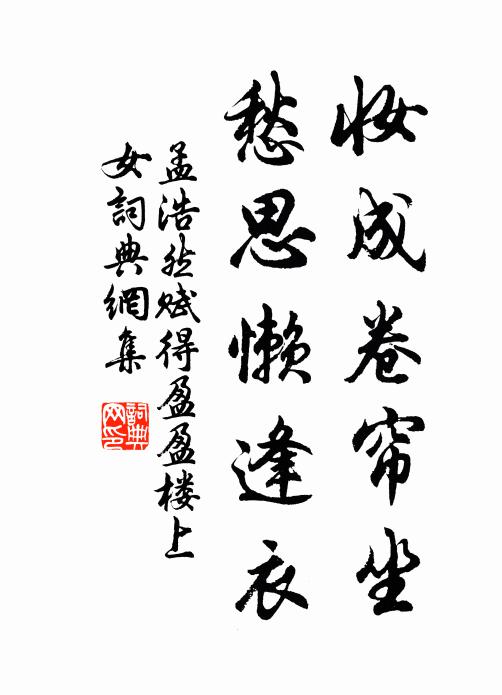 妆成卷帘坐
愁思懒逢衣
孟浩然赋得盈盈楼上
女詞典網集
詞典
网印